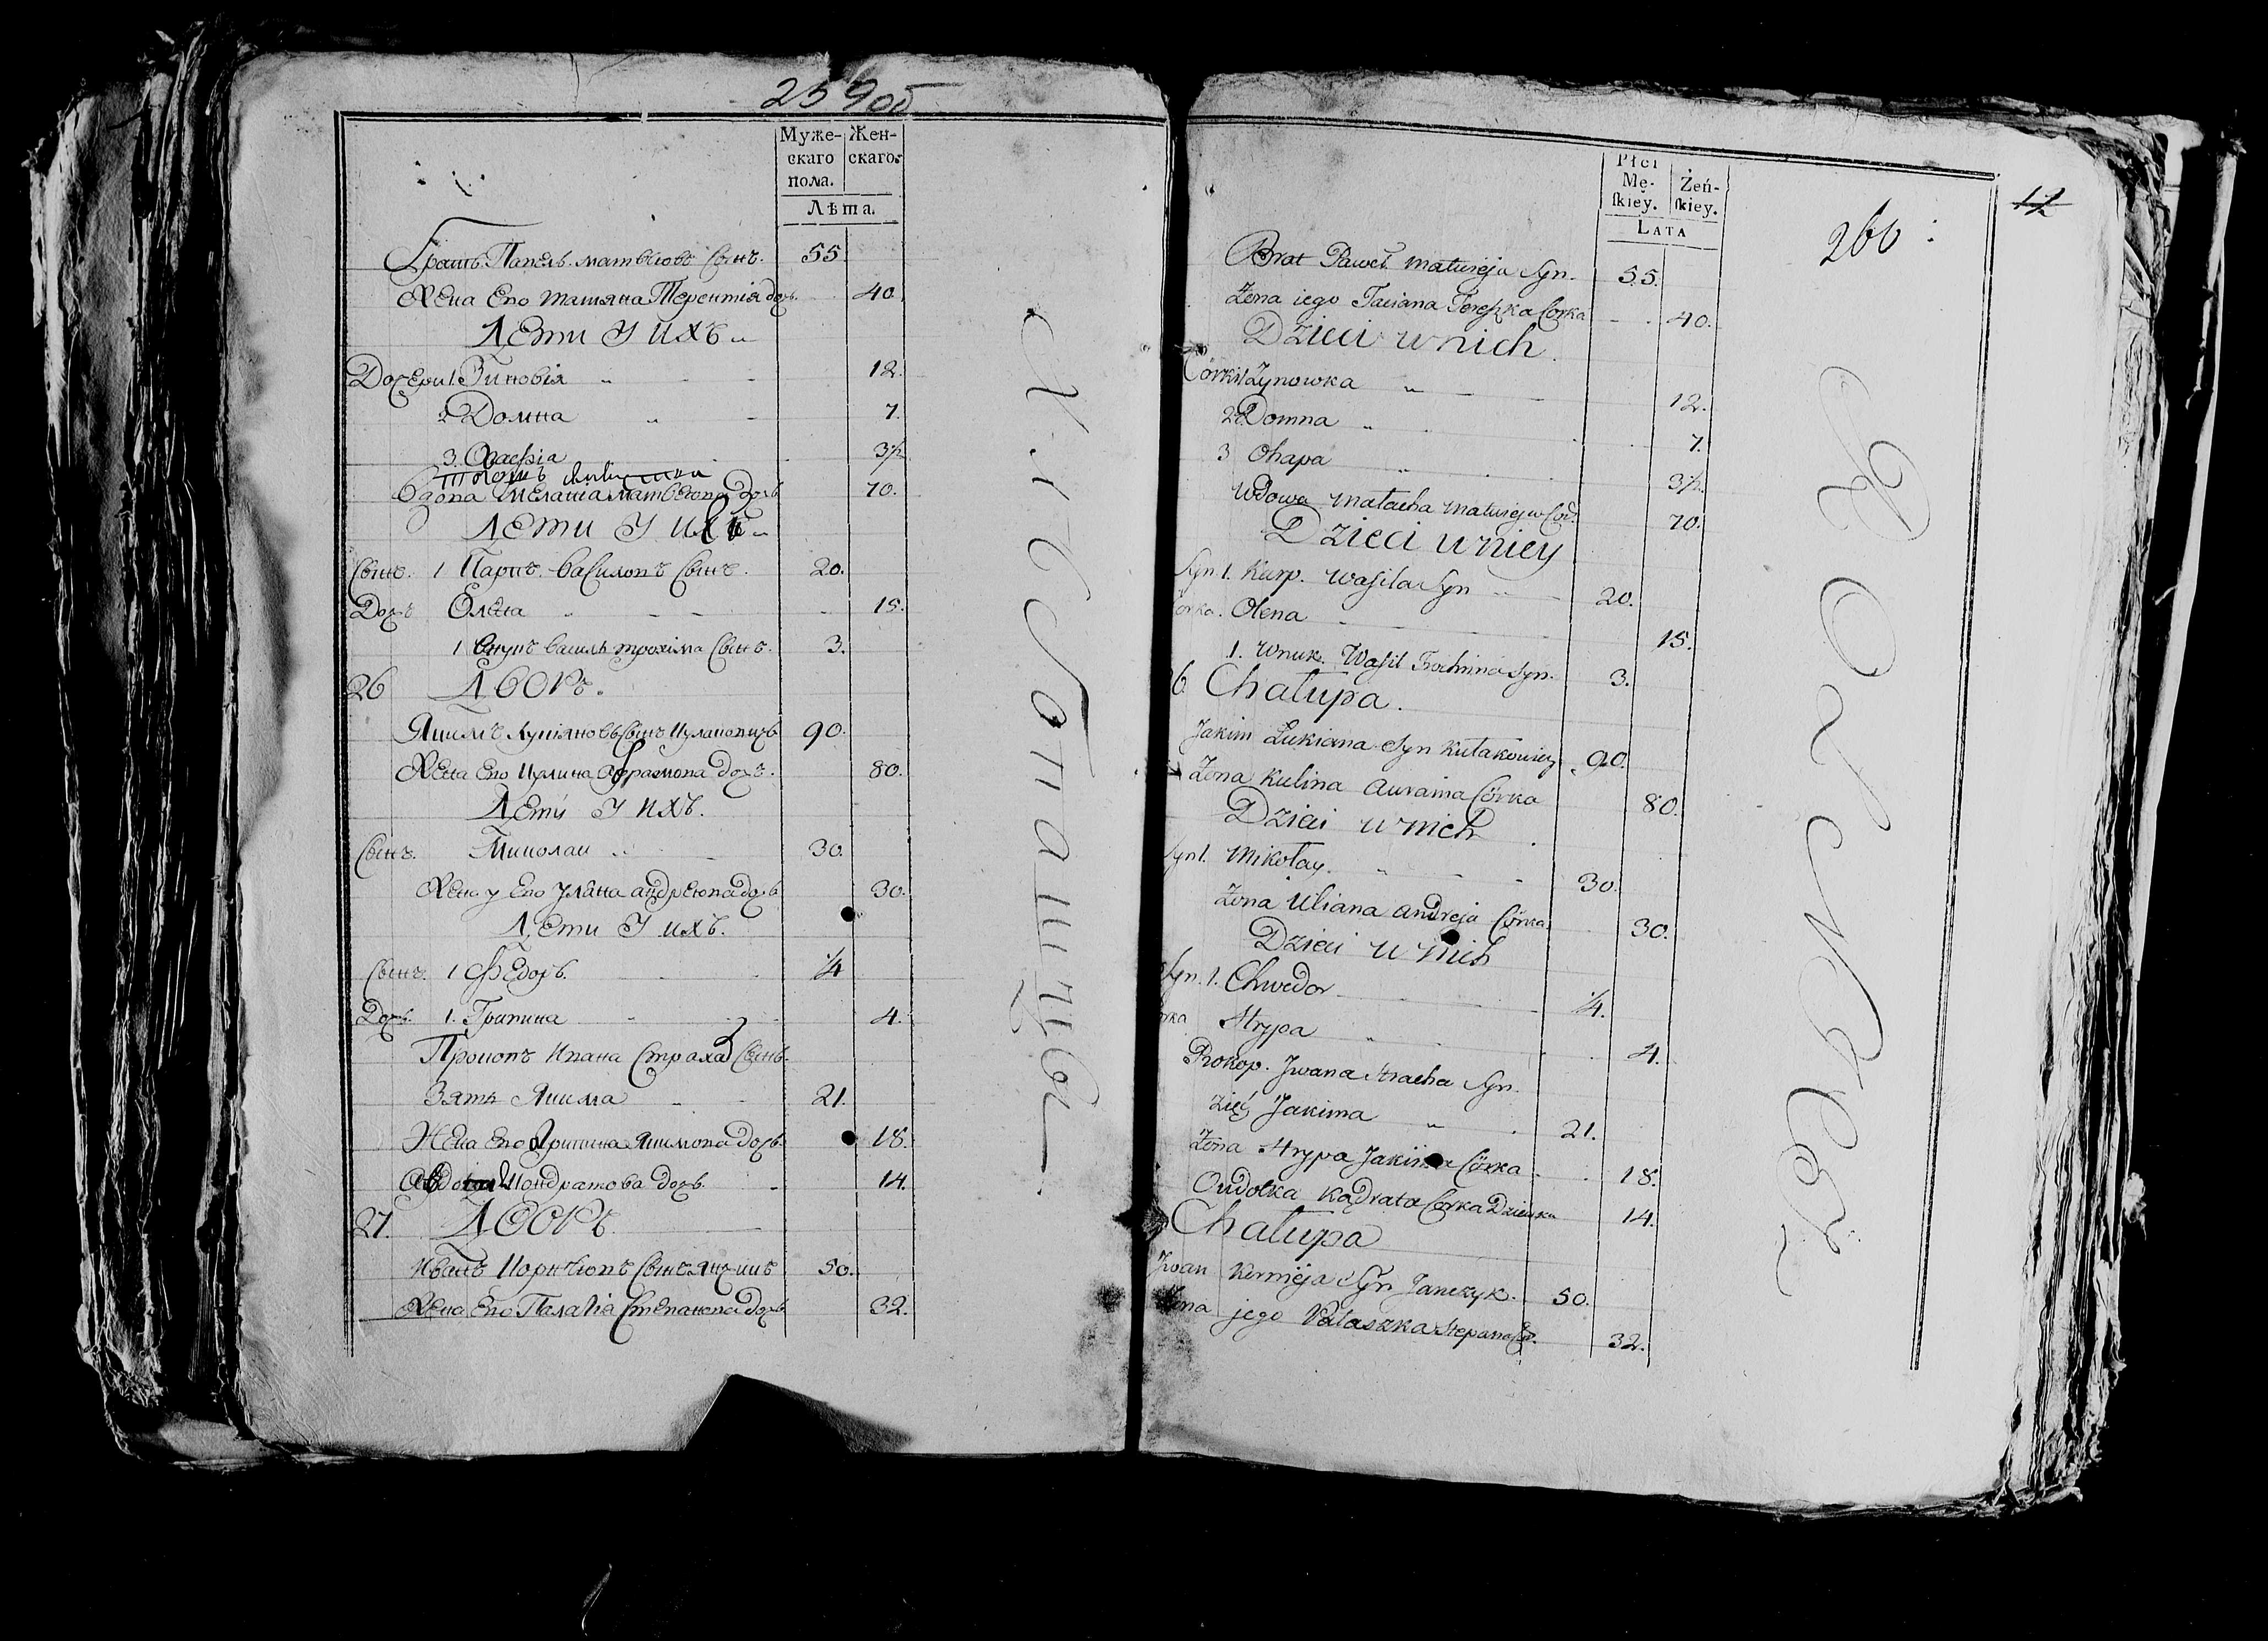 259об
Муже- Жен-
скаго скаго.
пола.
Лѣта.
Братъ Павелъ матвѣювъ Сынъ. 55
Жена Его татяна Терентія дочь. 40
Дети У ихъ
Дочери 1. Зиновія 12.
2 Домна 7.
3. 3½
Вдова матвѣюва дочь 70.
Дети У
Сынъ. 1 Карпъ василювъ Сынъ. 20.
Дочь Олена 15.
1 Внукъ василь трохима Сынъ. 3.
26 Дворъ.
Якимъ Лукіяновъ Сынъ Кулаковичъ 90.
Жена Его Кулина дочь. 80.
Дети У ихъ.
Сынъ. Миколаи 30.
Жена у Его Уляна андреюва дочь 30.
Дети У ихъ.
Сынъ. 1 Федоръ. ¼
Дочь. 1. Грипина 4.
Прокопъ Ивана Страха Сынъ.
Зять Якима 21.
Жена Его Грипина Якимова дочь. 18.
Кондратова дочь. 14.
27. Дворъ
Иванъ Корнѣювъ Сынъ Янчикъ 50.
Жена Его Палагія Степанова дочь 32.
Płci
Mę- Żeń-
ſkiey. ſkiey.
LATA
260
12
Brat Paweł Matwieja Syn. 55.
Żena iego Taciana Córka 40.
Dzieci u nich.
Córki 1 Zynowka 12.
2 Domna 7.
3 Ohapa 3½.
Udowa Małacha Matwieja Cór. 70.
Dzieci u niey
Syn 1. Karp. Wasila Syn 20.
Olena 15.
1. Wnuk. Wasil Trochima Syn. 3.
6 Chałupa.
Jakim Łukiana Syn Kułakowicz 90.
Żena Kulina Aurama Córka 80.
Dzieci u nich
Syn 1. Mikołay. 30.
Żena Uliana Andreja Córka 30.
Dzieci u nich
Syn. 1. Chwedor ¼.
Hrypa 4.
Prokop. Jwana Stracha Syn.
Zięć Jakima 21.
Żena Hrypa Jakima Córka 18.
Oudoćka Kądrata Córka Dziewka 14.
Chałupa
Jwan Kornieja Syn Janczyk. 50.
jego Pałaszka Stepana Cór. 32.